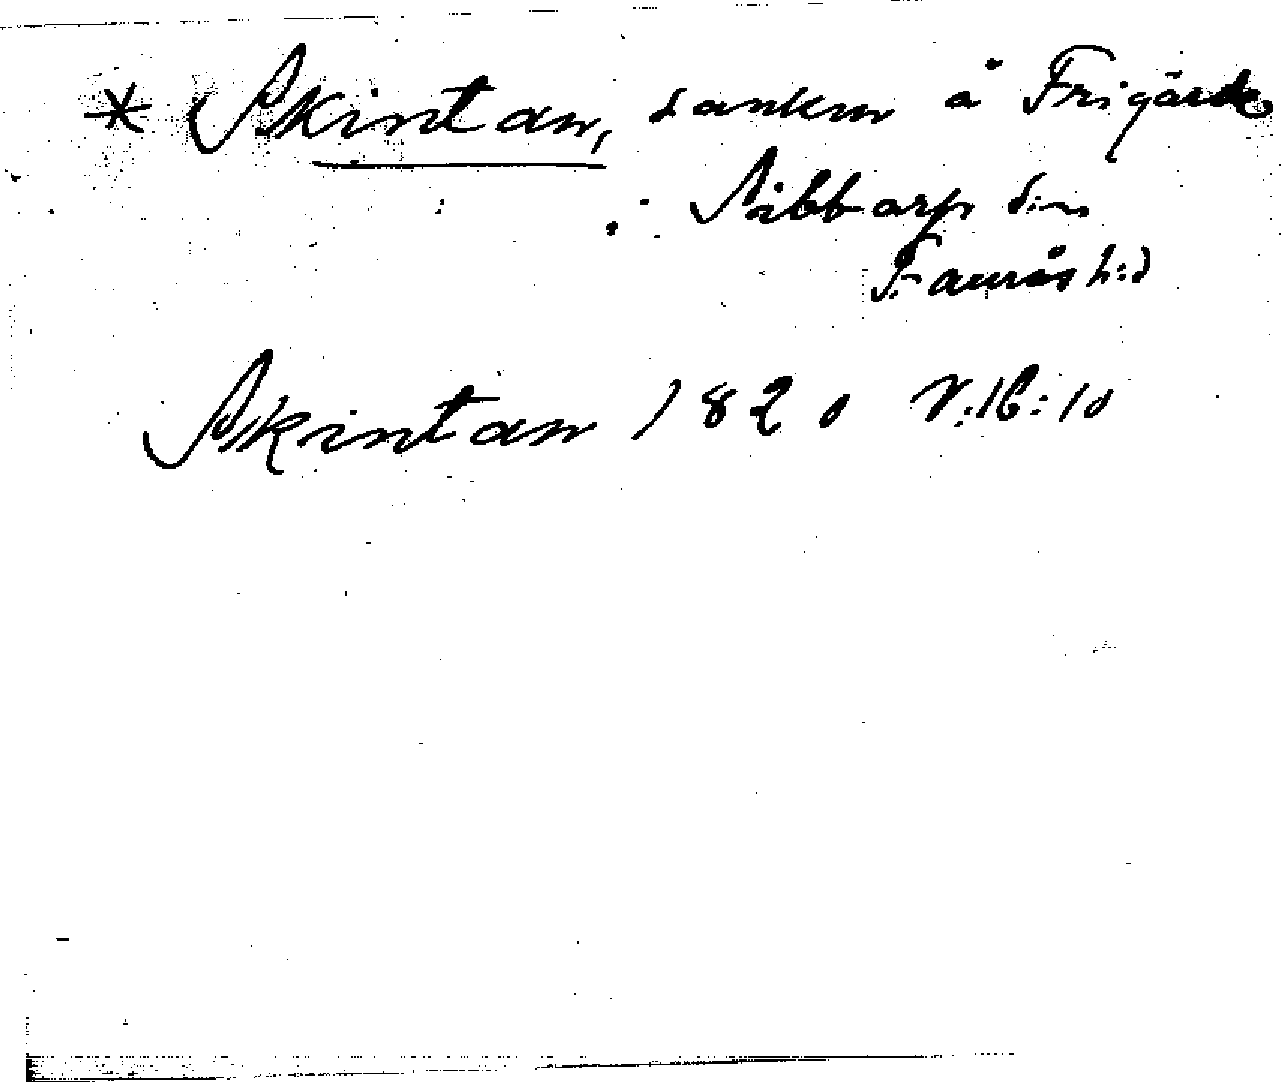 * Skintan, sankm å Frigärde
i Sibbarp sn
Faurås h:d
Skintan 1820 V:16:10